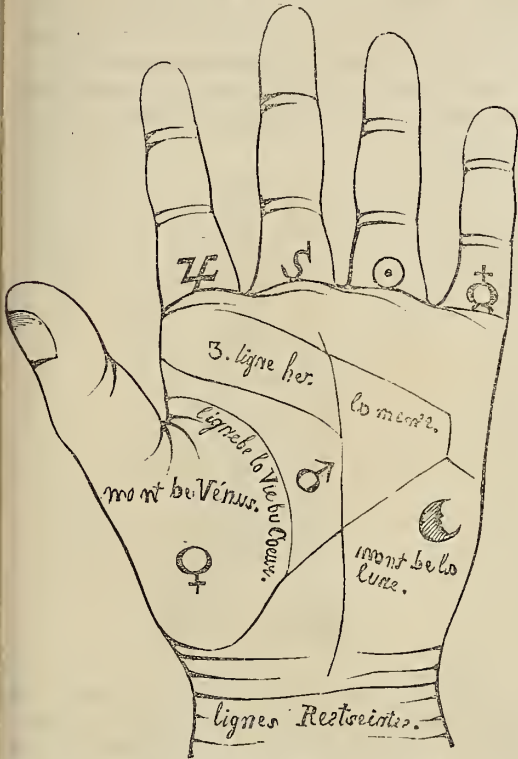 3. ligne her.
la mens.
ligne de la Vie du Coeur.
mont de Vénus.
mont de la
lune.
lignes Restreintes.